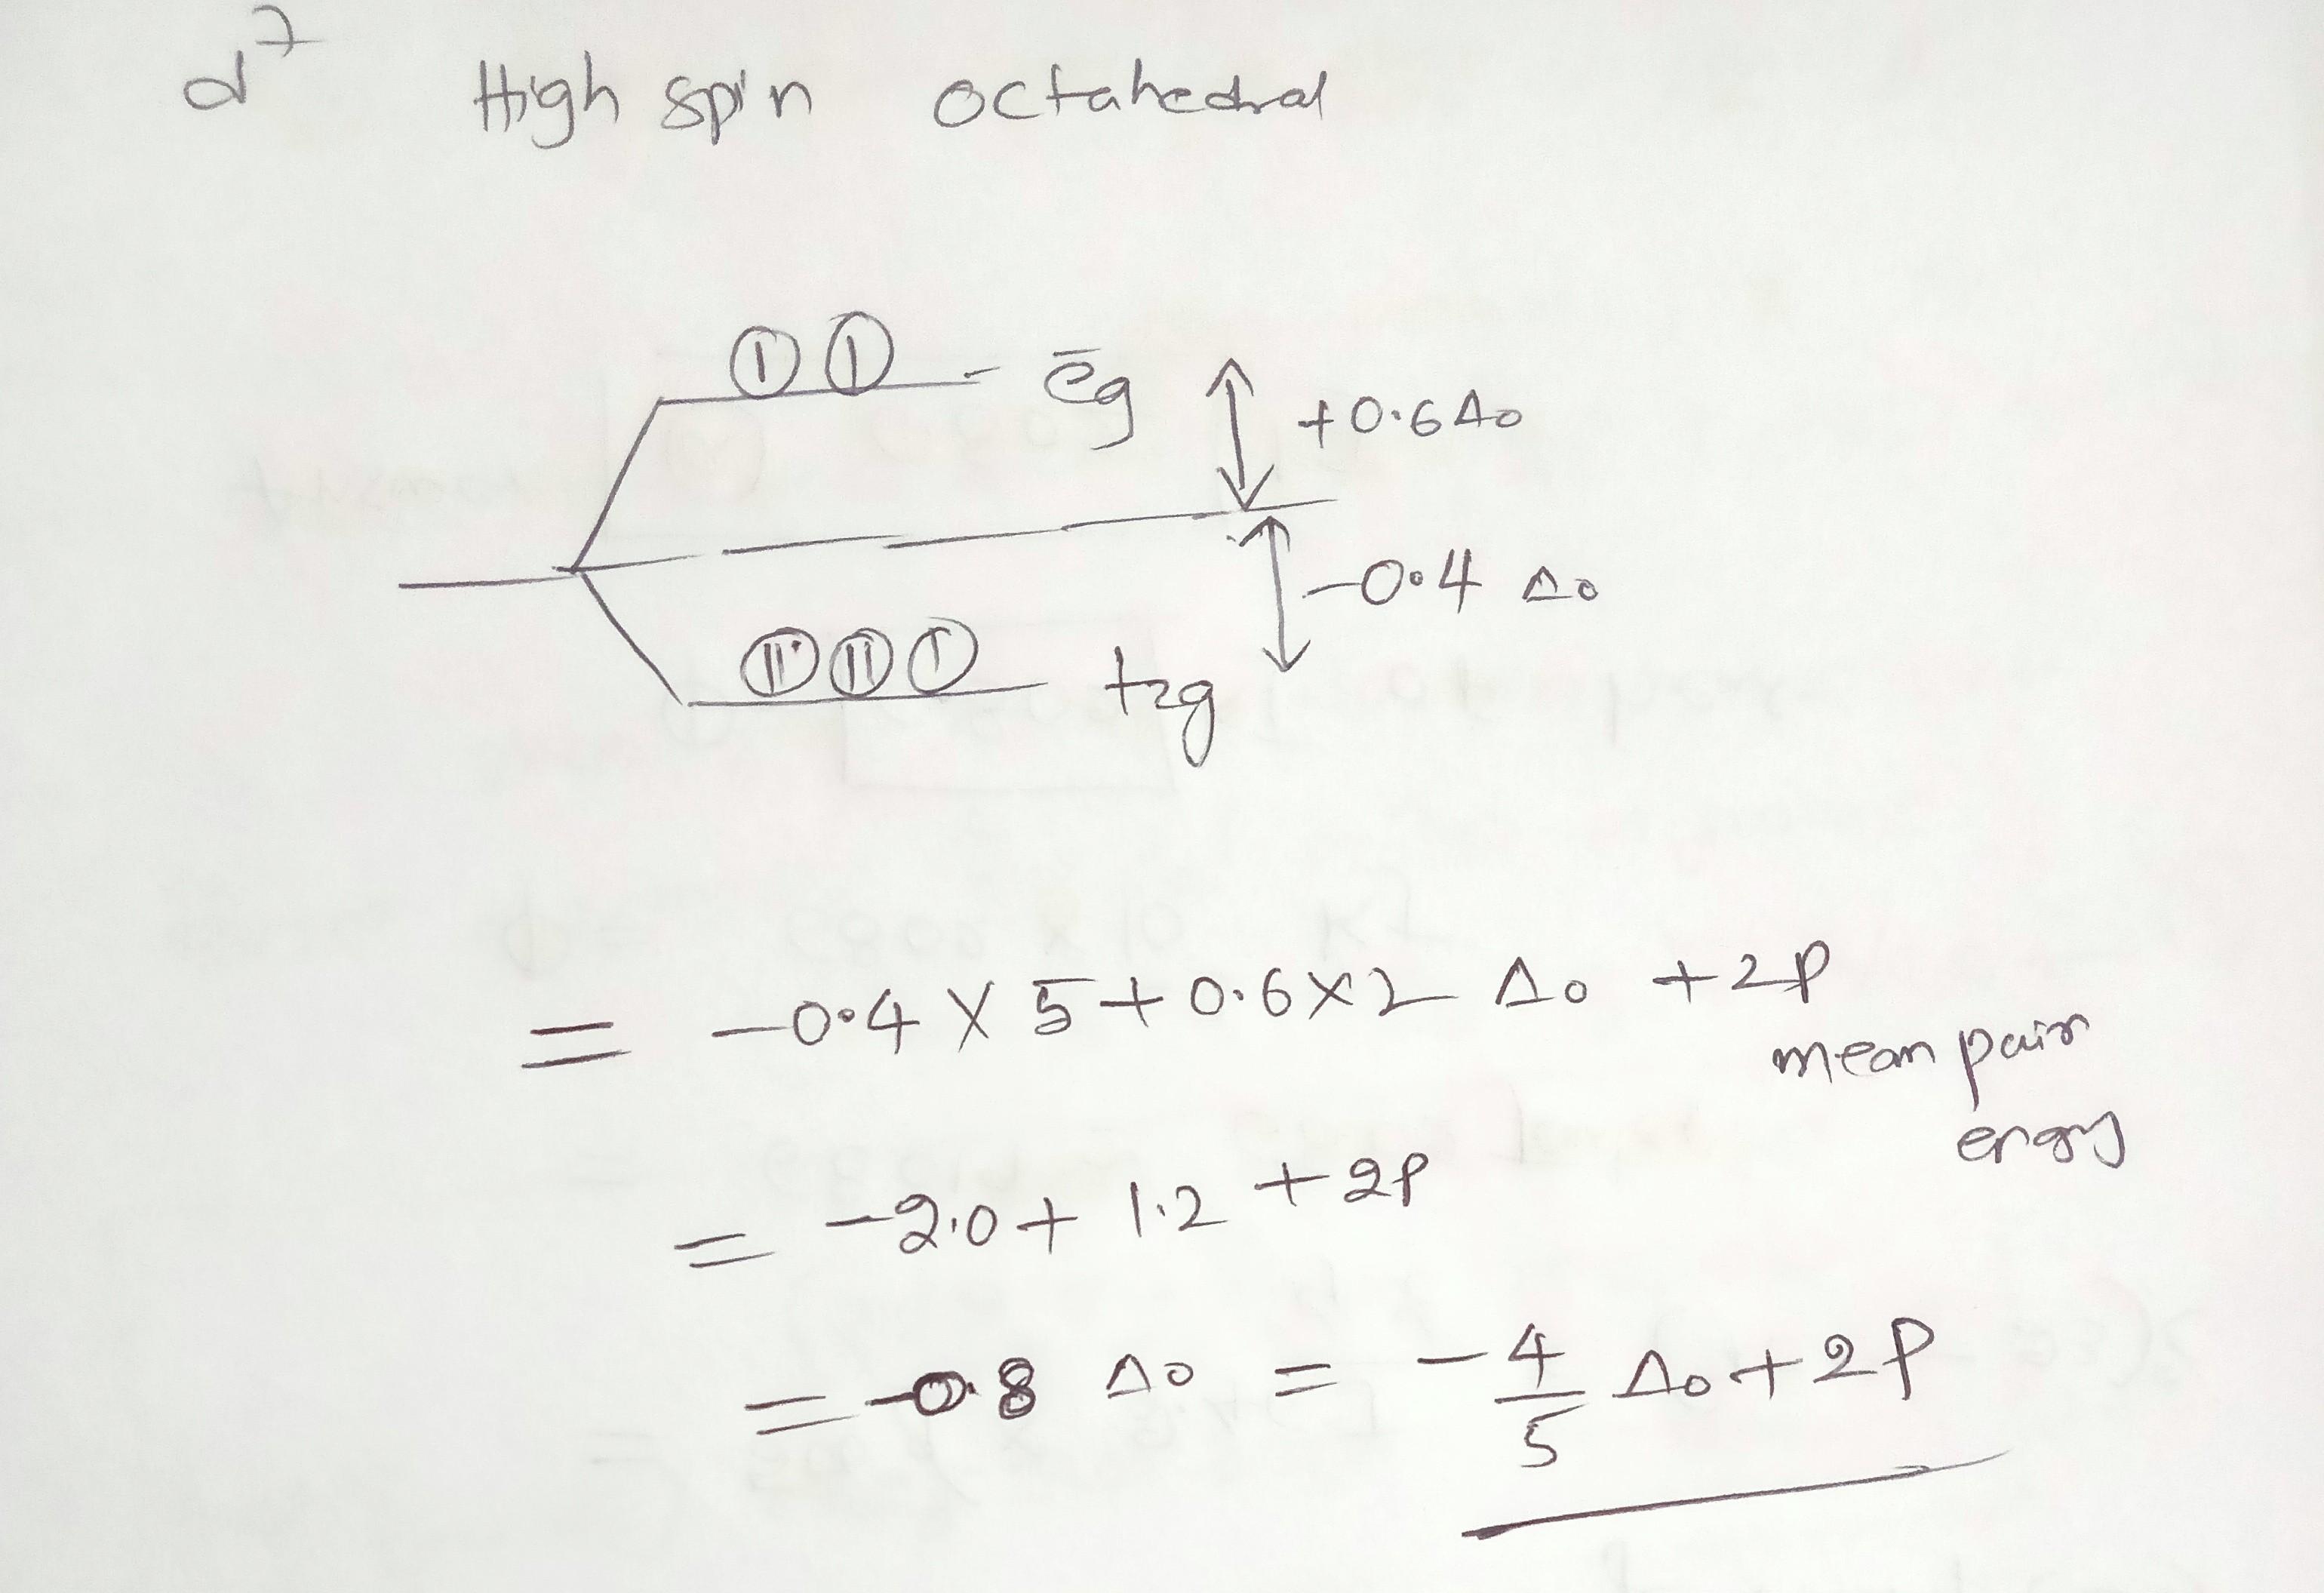 d⁷ High spin octahedral
eg +0.6 Δo
-0.4 Δo
t2g
= -0.4 × 5 + 0.6×2 Δo +2P
mean pair
= -2.0 + 1.2 +2P
= -0.8 Δo = -4/5 Δo + 2P